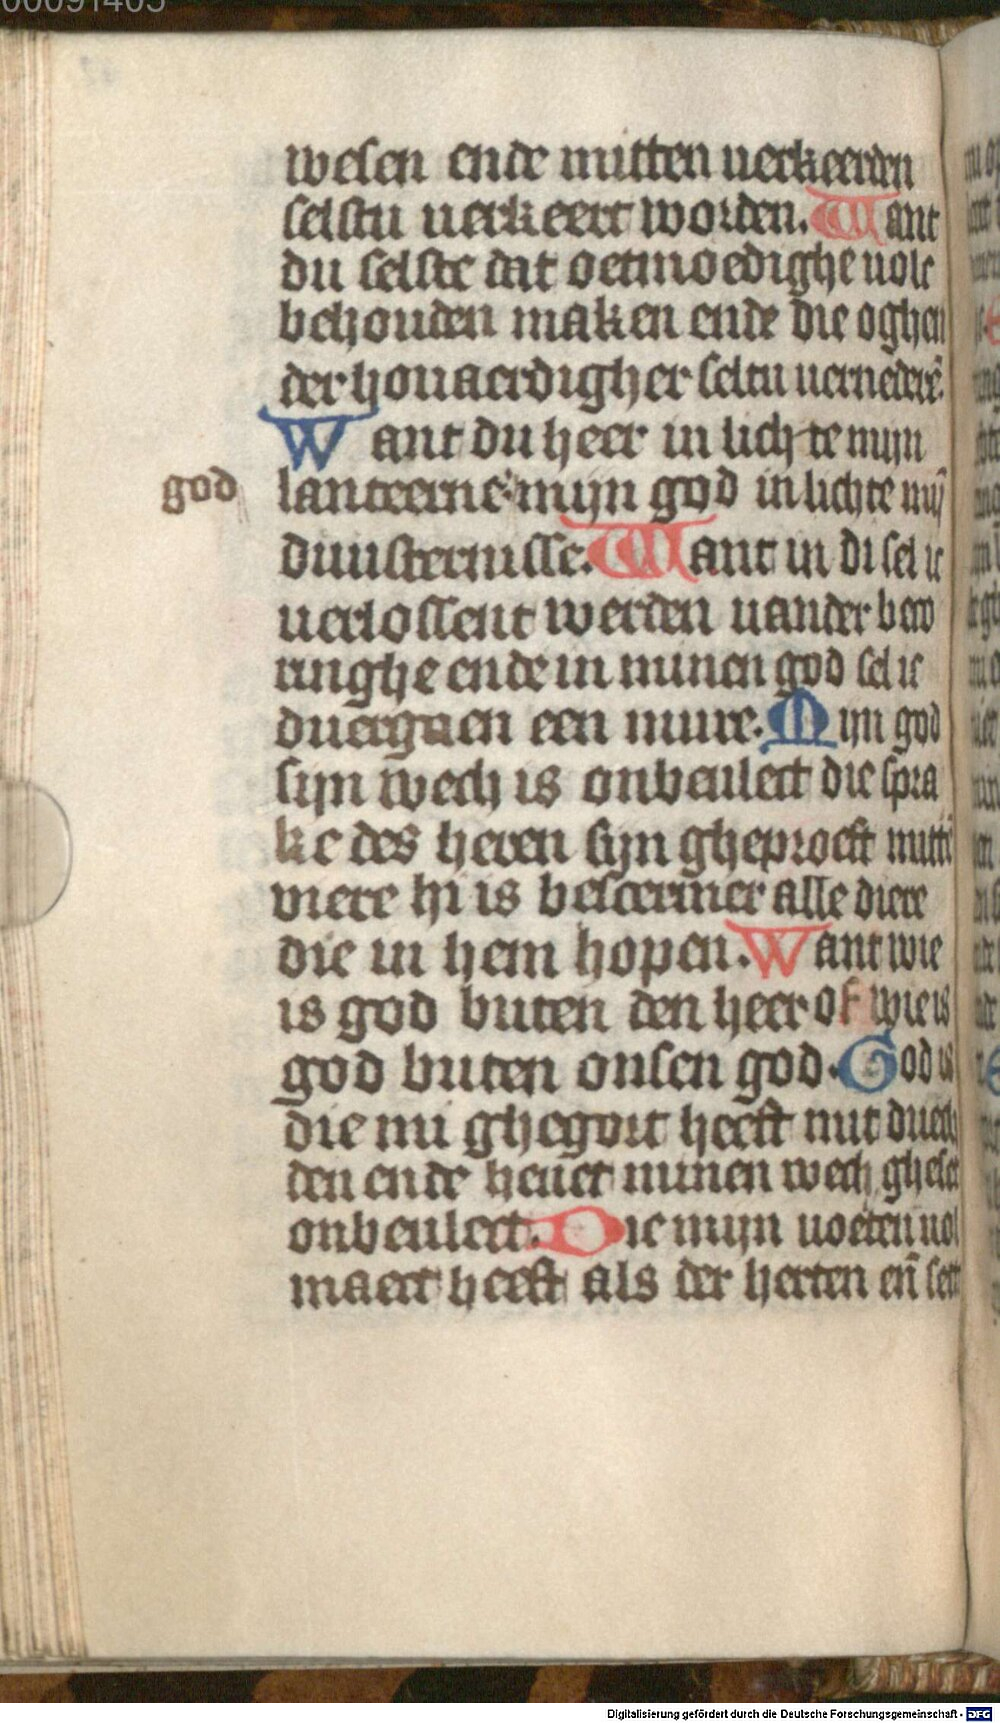 00091405
wesen ende mitten uerkeerden
selstu uerkeert worden. Want
du selste dat oetmoedighe uolc
behouden maken ende die oghen
der houaerdigher seltu uernederē.
Want du heer in lichte mijn
god
lanteerne mijn god in lichte mȳ
duusternisse. Want in di sel ic
uerlossent werden uander beco
ringhe ende in minen god sel ic
duergaen een mure. Mijn god
sijn wech is onbeulect die spra
ke des heren sijn gheproeft mittē
viere hi is bescermer alle diere
die in hem hopen. Want wie
is god buten den heer of wie is
god buten onsen god. God is
die mi ghegort heeft mit duech
den ende heuet minen wech gheset
onbeulect. Die mijn uoeten uol
maect heeft als der herten eñ sett
Digitalisierung gefördert durch die Deutsche Forschungsgemeinschaft - DFG